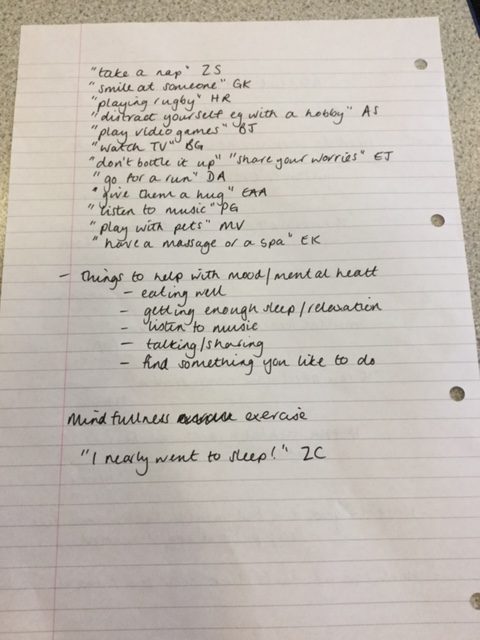 "take a nap" ZS
"smile at someone" GK
"playing rugby" HR
"distract yourself eg with a hobby" AS
"play video games" BJ
"watch TV" BG
"don't bottle it up" "share your worries" EJ
"go for a run" DA
"give them a hug" EAA
"listen to music" PG
"play with pets" MV
"have a massage or a spa" EK
- Things to help with mood/mental healt
- eating well
- getting enough sleep/relaxation
- listen to music
- talking/sharing
- find something you like to do
Mindfullness exercise
"I nearly went to sleep!" ZC